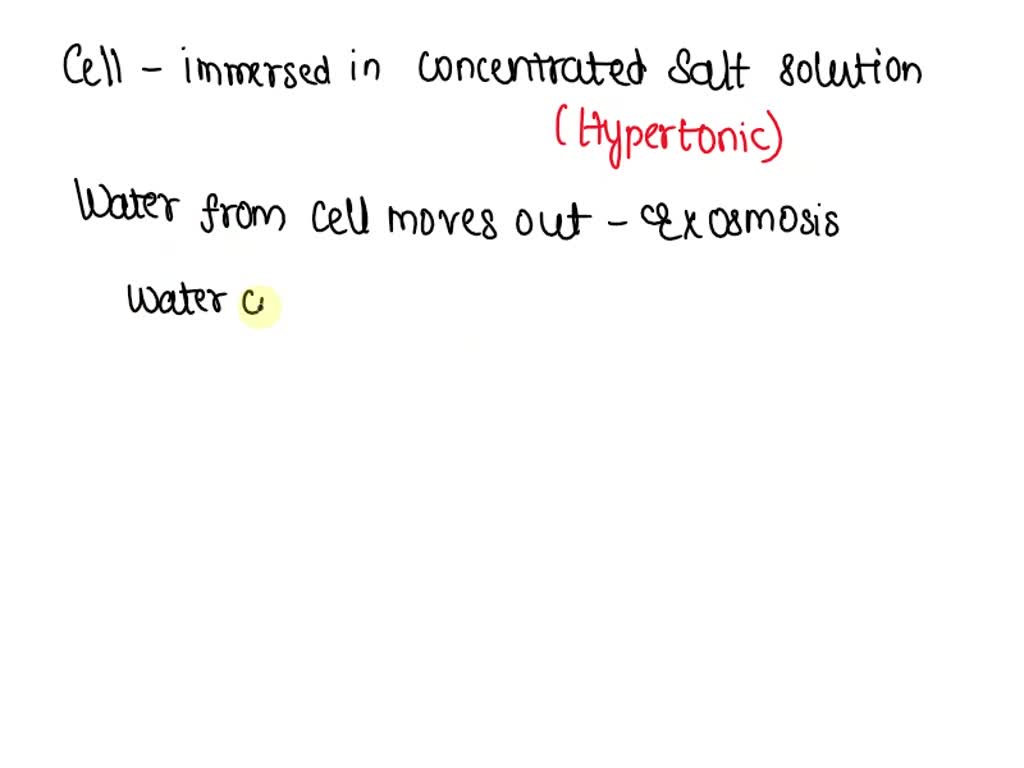 Cell - immersed in concentrated salt solution
(Hypertonic)
Water from cell moves out - Exosmosis
Water c